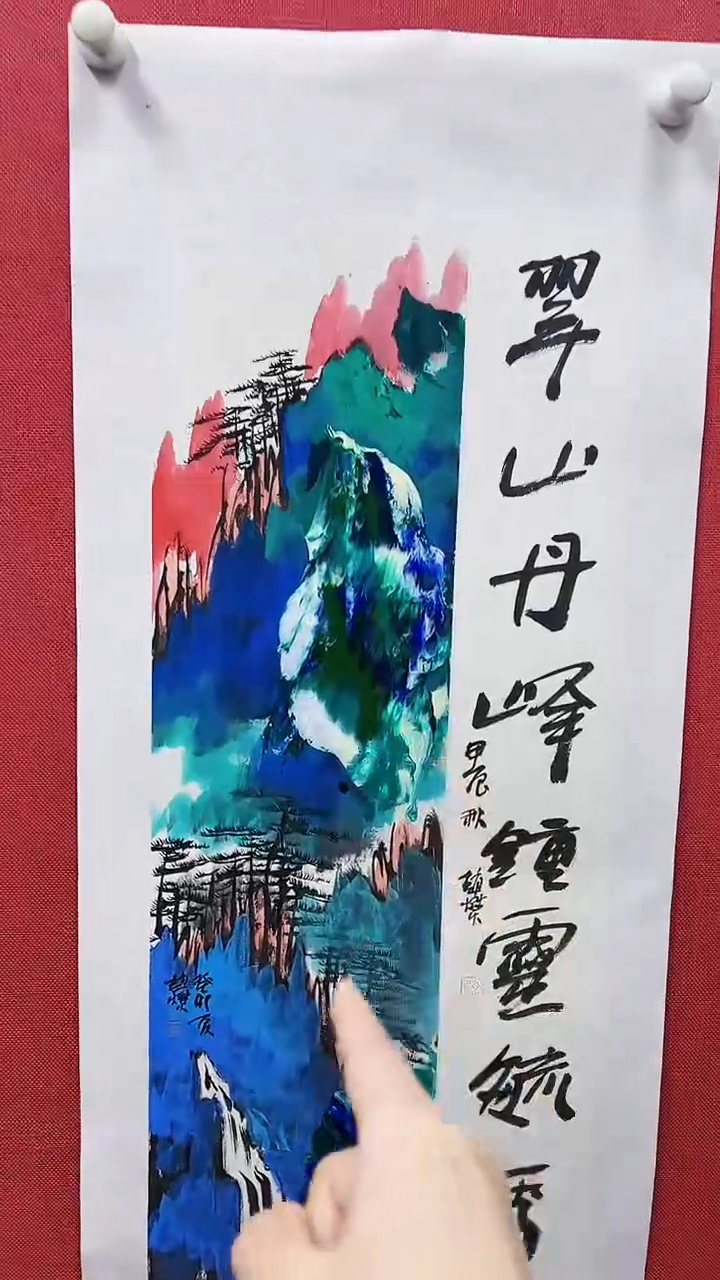 翠山丹峰鍾靈毓
甲辰秋
癸卯夏